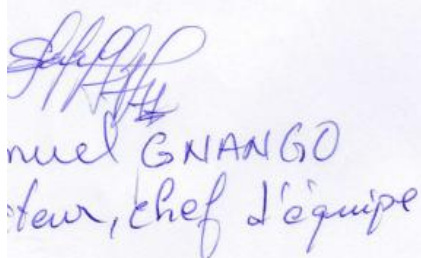 nuel GNANGO
teur, chef d'équipe